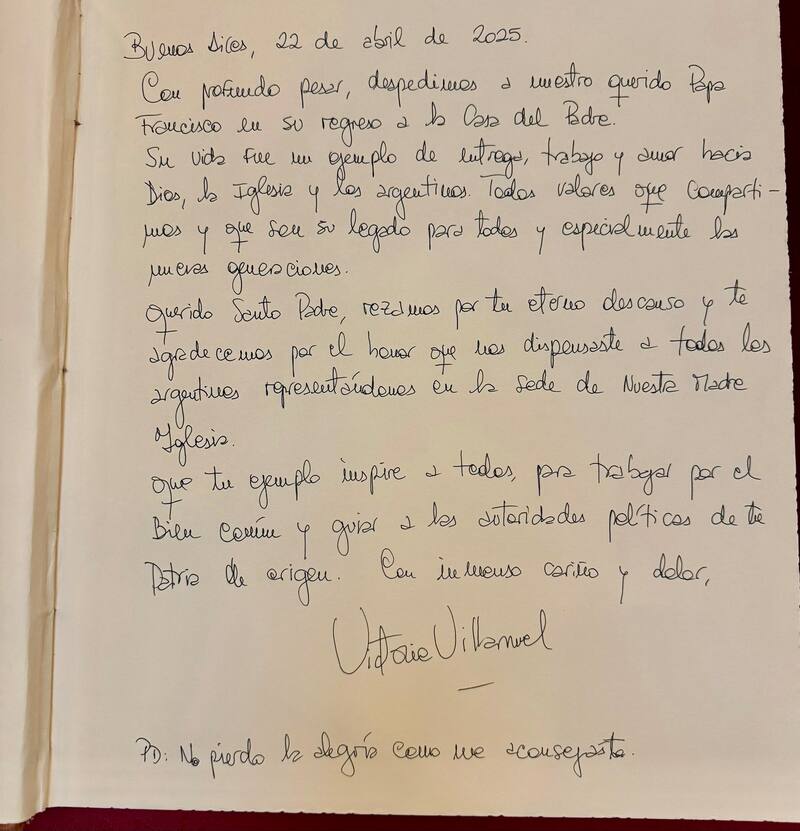 Buenos Aires, 22 de abril de 2025.
Con profundo pesar, despedimos a nuestro querido Papa
Francisco en su regreso a la Casa del Padre.
Su vida fue un ejemplo de entrega, trabajo y amor hacia
Dios, la Iglesia y los argentinos. Todos valores que comparti-
mos y que son su legado para todos y especialmente las
nuevas generaciones.
Querido Santo Padre, rezamos por tu eterno descanso y te
agradecemos por el honor que nos dispensaste a todos los
argentinos representándonos en la sede de Nuestra Madre
Iglesia.
Que tu ejemplo inspire a todos, para trabajar por el
Bien común y guiar a las autoridades políticas de tu
Patria de origen. Con inmenso cariño y dolor,
Victoria Villarruel
PD: No pierdo la alegría como me aconsejaste.